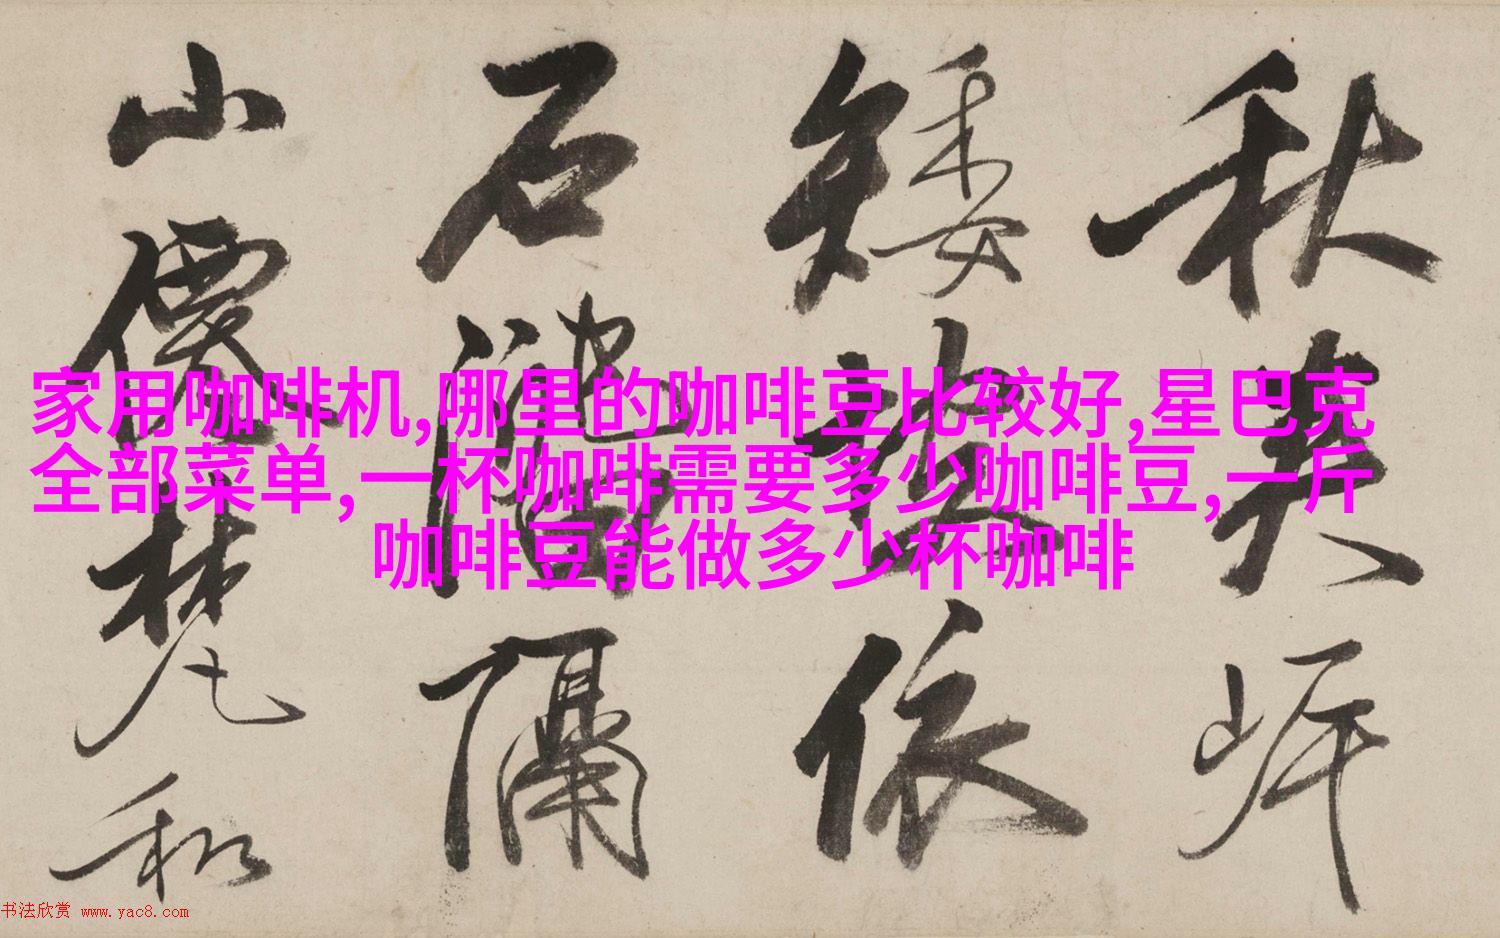 家用咖啡机,哪里的咖啡豆比较好,星巴克
全部菜单,一杯咖啡需要多少咖啡豆,一斤
咖啡豆能做多少杯咖啡
秋
矮 依
石 隔
山 梵和
书法欣赏 www.yac8.com